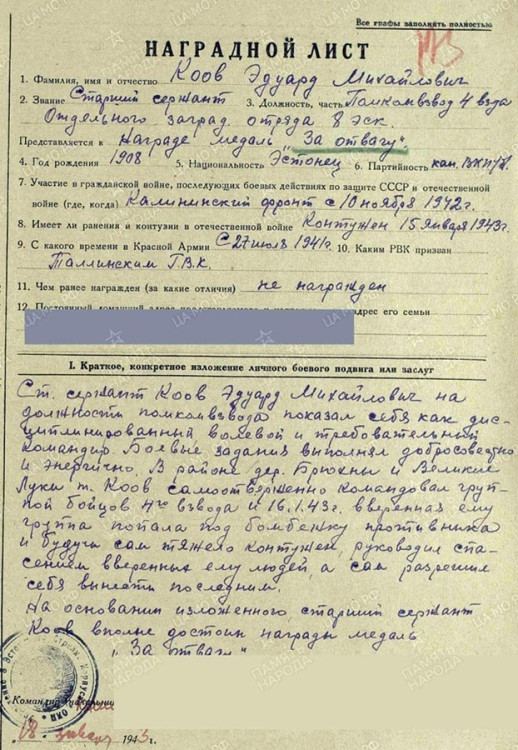 Все графы заполнять полностью
НАГРАДНОЙ ЛИСТ
1. Фамилия, имя и отчество Коов Эдуард Михайлович
2. Звание Старший сержант 3. Должность, часть Помкомвзвод 4 взвда
Отдельного заград. отряда 8 ЭСК.
Представляется к Награде медаль „За отвагу".
4. Год рождения 1908 5. Национальность Эстонец 6. Партийность кан. ВКП/б/.
7. Участие в гражданской войне, последующих боевых действиях по защите СССР и отечественной
войне (где, когда) Калининский фронт с 10 ноября 1942 г.
8. Имеет ли ранения и контузии в отечественной войне Контужен 15 января 1943 г.
9. С какого времени в Красной Армии С 27 июля 1941 г. 10. Каким РВК призван
Таллинским Г.В.К.
11. Чем ранее награжден (за какие отличия) не награжден
12. Постоянный домашний адрес адрес его семьи
I. Краткое, конкретное изложение личного боевого подвига или заслуг
Ст. сержант Коов Эдуард Михайлович на
должности помкомвзвода показал себя как дис-
циплинированный волевой и требовательный
командир. Боевые задания выполнял добросовестно
и энергично. В районе дер. Брюхны и Великие
Луки т. Коов самоотверженно командовал груп-
пой бойцов 4го взвода и 16.1.43 г. вверенная ему
группа попала под бомбежку противника
и будучи сам тяжело контужен, руководил спа-
сением вверенных ему людей, а сам разрешил
себя вынести последним.
На основании изложенного, старший сержант
Коов вполне достоин награды медаль
„За отвагу"
Командир
"18" января 1943 г.
ПАМЯТЬ НАРОДА
ЦА МО РФ